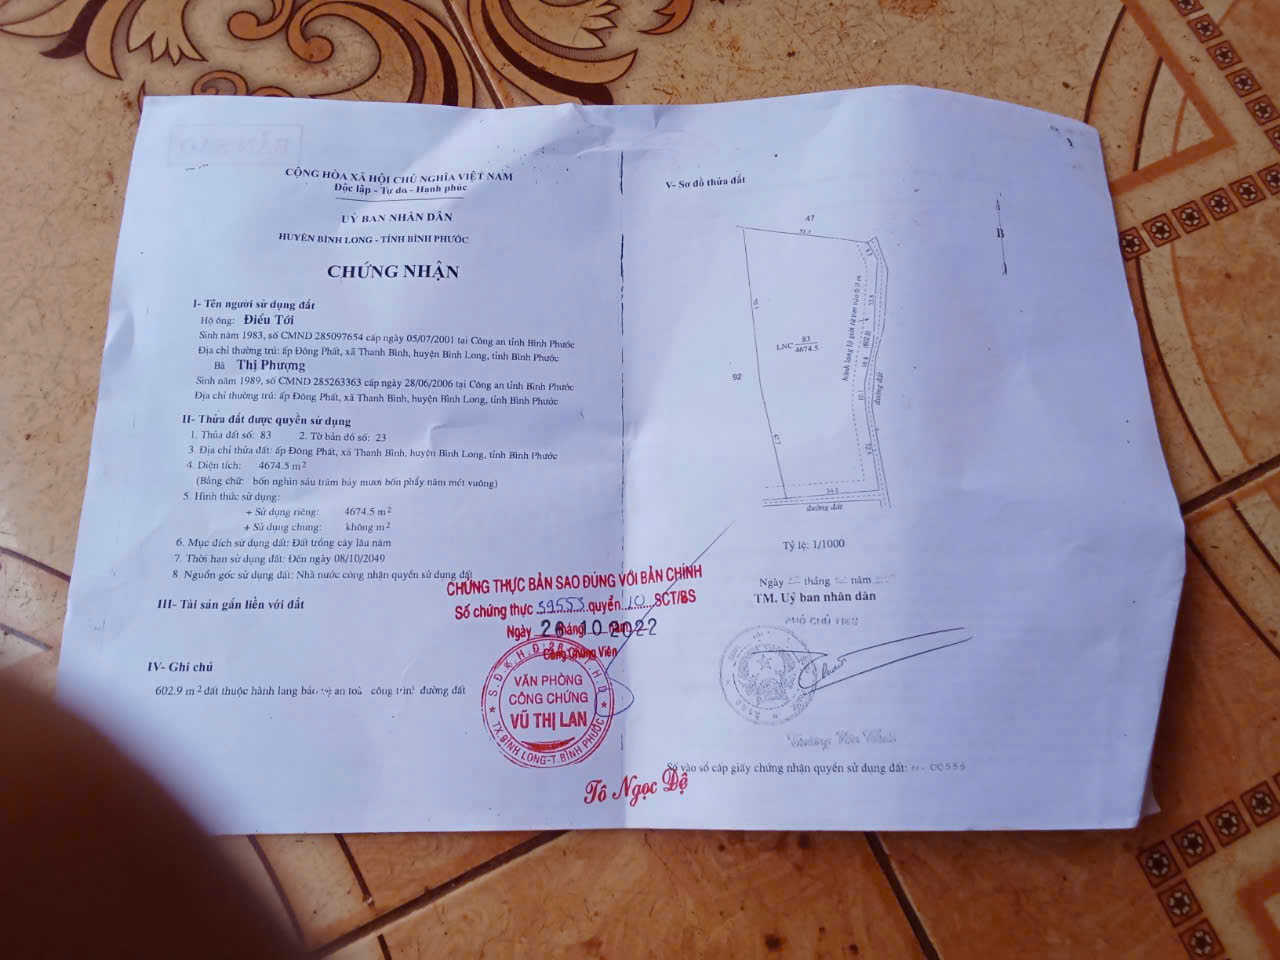 BẢN SAO
CỘNG HÒA XÃ HỘI CHỦ NGHĨA VIỆT NAM
Độc lập - Tự do - Hạnh phúc
UỶ BAN NHÂN DÂN
HUYỆN BÌNH LONG - TỈNH BÌNH PHƯỚC
CHỨNG NHẬN
I- Tên người sử dụng đất
Hộ ông: Điểu Tới
Sinh năm 1983, số CMND 285097654 cấp ngày 05/07/2001 tại Công an tỉnh Bình Phước
Địa chỉ thường trú: ấp Đông Phất, xã Thanh Bình, huyện Bình Long, tỉnh Bình Phước
Bà Thị Phượng
Sinh năm 1989, số CMND 285263363 cấp ngày 28/06/2006 tại Công an tỉnh Bình Phước
Địa chỉ thường trú: ấp Đông Phất, xã Thanh Bình, huyện Bình Long, tỉnh Bình Phước
II- Thửa đất được quyền sử dụng
1. Thửa đất số: 83 2. Tờ bản đồ số: 23
3. Địa chỉ thửa đất: ấp Đông Phất, xã Thanh Bình, huyện Bình Long, tỉnh Bình Phước
4. Diện tích: 4674.5 m²
(Bằng chữ: bốn nghìn sáu trăm bảy mươi bốn phẩy năm mét vuông)
5. Hình thức sử dụng:
+ Sử dụng riêng: 4674.5 m²
+ Sử dụng chung: không m²
6. Mục đích sử dụng đất: Đất trồng cây lâu năm
7. Thời hạn sử dụng đất: Đến ngày 08/10/2049
8. Nguồn gốc sử dụng đất: Nhà nước công nhận quyền sử dụng đất
III- Tài sản gắn liền với đất
IV- Ghi chú
602.9 m² đất thuộc hành lang bảo vệ an toàn công trình đường đất
CHỨNG THỰC BẢN SAO ĐÚNG VỚI BẢN CHÍNH
Số chứng thực 59553 quyển 10 SCT/BS
Ngày 26 tháng 10 năm 2022
Công Chứng Viên
VĂN PHÒNG
CÔNG CHỨNG
VŨ THỊ LAN
TX.BÌNH LONG-T.BÌNH PHƯỚC
Tô Ngọc Dệ
V- Sơ đồ thửa đất
47
B
LNC 83
4674.5
92
hành lang lộ giới từ tim vào 6.0 m
(602.9)
10.1
34.1
đường đất
đường đất
Tỷ lệ: 1/1000
Ngày tháng năm
TM. Uỷ ban nhân dân
PHÓ CHỦ TỊCH
Số vào sổ cấp giấy chứng nhận quyền sử dụng đất: